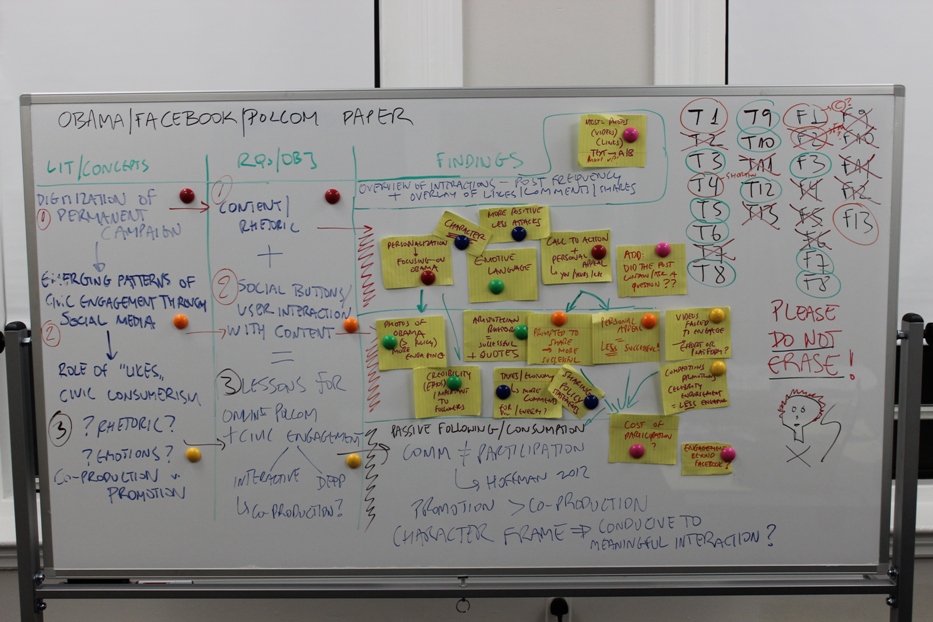 OBAMA/FACEBOOK/POLCOM PAPER
LIT/CONCEPTS
DIGITIZATION OF
1 PERMANENT
CAMPAIGN
EMERGING PATTERNS OF
CIVIC ENGAGEMENT THROUGH
SOCIAL MEDIA
2
ROLE OF "LIKES"
CIVIC CONSUMERISM
3 ? RHETORIC?
? EMOTIONS?
CO-PRODUCTION
PROMOTION
RQs/OBJ
1
CONTENT/
RHETORIC
+
2 SOCIAL BUTTONS/
USER INTERACTION
WITH CONTENT
=
3 LESSONS FOR
ONLINE POLCOM
+ CIVIC ENGAGEMENT
INTERACTIVE DEEP
↳ CO-PRODUCTION?
FINDINGS
OVERVIEW OF INTERACTIONS - POST FREQUENCY
+ OVERLAY OF LIKES/COMMENT/SHARES
(VIDEO)
(LINKS)
CHARACTER
MORE POSITIVE
LESS ATTACKS
PERSONALIZATION
FOCUSING ON
OBAMA
EMOTIVE
LANGUAGE
CALL TO ACTION
+
PERSONAL
APPEAL
ADD:
DID THE POST
CONTAIN/ASK A
QUESTION??
PHOTOS OF
OBAMA
MORE
ARISTOTELIAN
RHETORIC
= SUCCESSFUL
+ QUOTES
PROMPTED TO
SHARE → MORE
SUCCESSFUL
PERSONAL
APPEAL
LESS SUCCESSFUL!
VIDEOS
FAILED TO
ENGAGE
→ EFFORT OR
PLATFORM?
CREDIBILITY
(ETHOS)
IMPORTANT TO
FOLLOWERS
TAXES/ECONOMY
↳ MORE
COMMENT
FOR/
SHARING
POLICY
STATEMENTS
COMPETITIONS
CELEBRITY
ENDORSEMENT
= LESS
COST OF
PARTICIPATION
?
ENGAGEMENT
BEYOND
FACEBOOK?
PASSIVE FOLLOWING/CONSUMPTION
COMM ≠ PARTICIPATION
↳ HOFFMAN 2012
PROMOTION > CO-PRODUCTION
CHARACTER FRAME ⇒ CONDUCIVE TO
MEANINGFUL INTERACTION?
T1 T9 F1 F9
T2 T10 F2
T3 TA1 F3
T4 T12 F4 F12
T5 T13 F5 F13
T6 F6
T7 F7
T8 F8
PLEASE
DO NOT
ERASE!